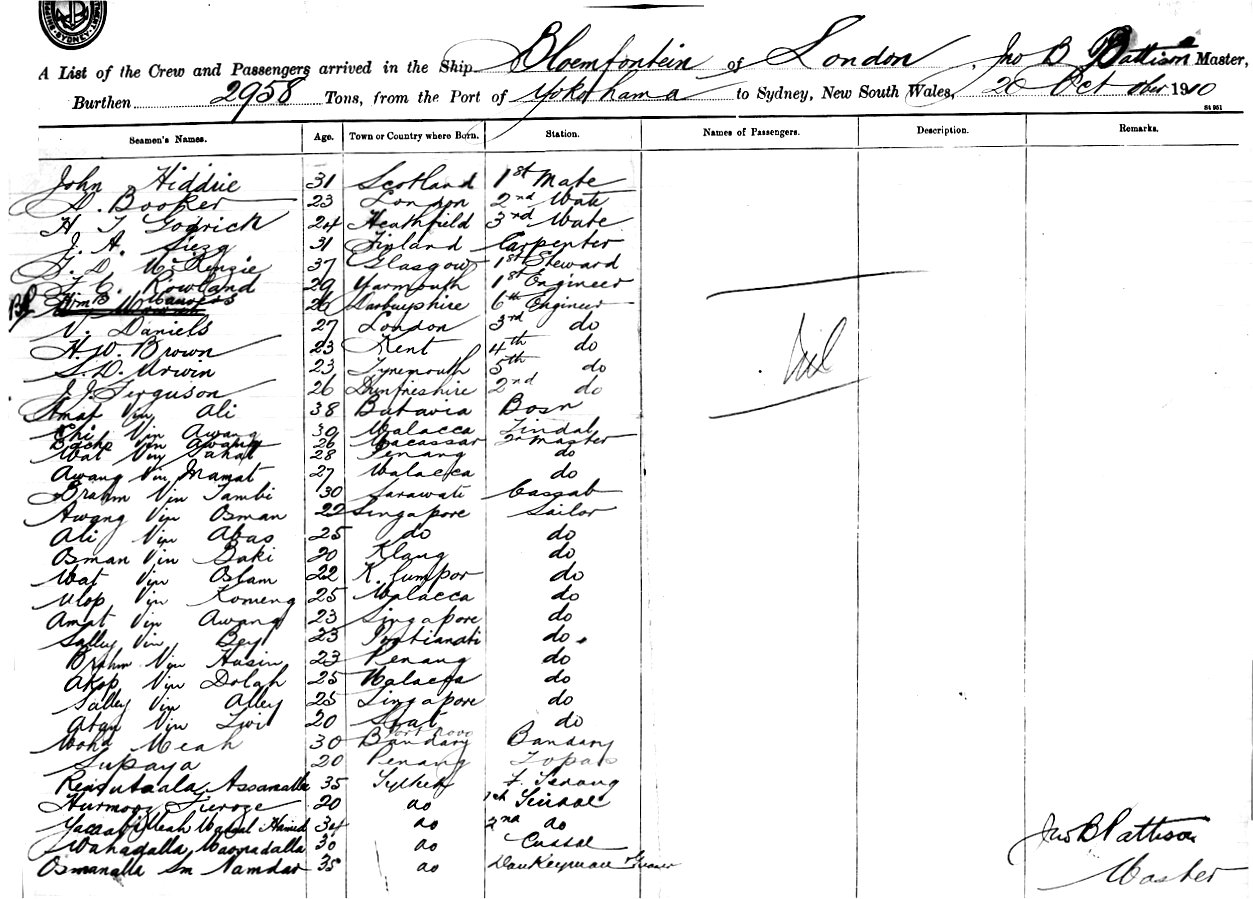 SYDNEY
A List of the Crew and Passengers arrived in the Ship Bloemfontein of London, Jno B Pattison Master,
Burthen 2958 Tons, from the Port of Yokohama to Sydney, New South Wales, 26 October 1910
St 951
Seamen's Names. Age. Town or Country where Born. Station. Names of Passengers. Description. Remarks.
John Hiddie 31 Scotland 1st Mate
D. Booker 23 London 2nd Mate
H T Godrich 24 Heathfield 3rd Mate
J. A. 31 Finland Carpenter
D. McKenzie 37 Glasgow 1st Steward
C. Rowland 29 Yarmouth 1st Engineer
26 Darbuyshire 6th Engineer
V. Daniels 27 London 3rd do
H. W. Brown 23 Kent 4th do
S. D. Urwin 23 Tynemouth 5th do
J. J. Ferguson 26 Dumfrieshire 2nd do
Nil
Amat Vin Ali 38 Batavia Bosn
Chi Vin Awang 30 Malacca Tindal
Bacho Vin Awang 26 Macassar Qr Master
Wat Vin Sahat 28 Penang do
Awang Vin Mamat 27 Malacca do
Brahm Vin Tambi 30 Sarawati Cassab
Awang Vin Osman 22 Singapore Sailor
Ali Vin Abas 25 do do
Osman Vin Baki 20 Klang do
Mat Vin Oslam 22 K. Lumpor do
Ulop Vin Komeng 25 Malacca do
Amat Vin Awang 23 Singapore do
Salley Vin Bey 23 do
Brahm Vin Hasin 23 Penang do
Akop Vin Dolah 25 Malacca do
Salley Vin Alley 25 Singapore do
Atan Vin 20 do
Mohd Meah 30 Port Novo Bandary
Supaya 20 Penang Topas
Assamalla 35 Sylhet F. Serang
Hurmooz Fieroze 20 do 1st
34 do 2nd do
Wahadalla 30 do Cassab
Osmanalla Sm Namdar 35 do Donkeyman
Jno B Pattison
Master